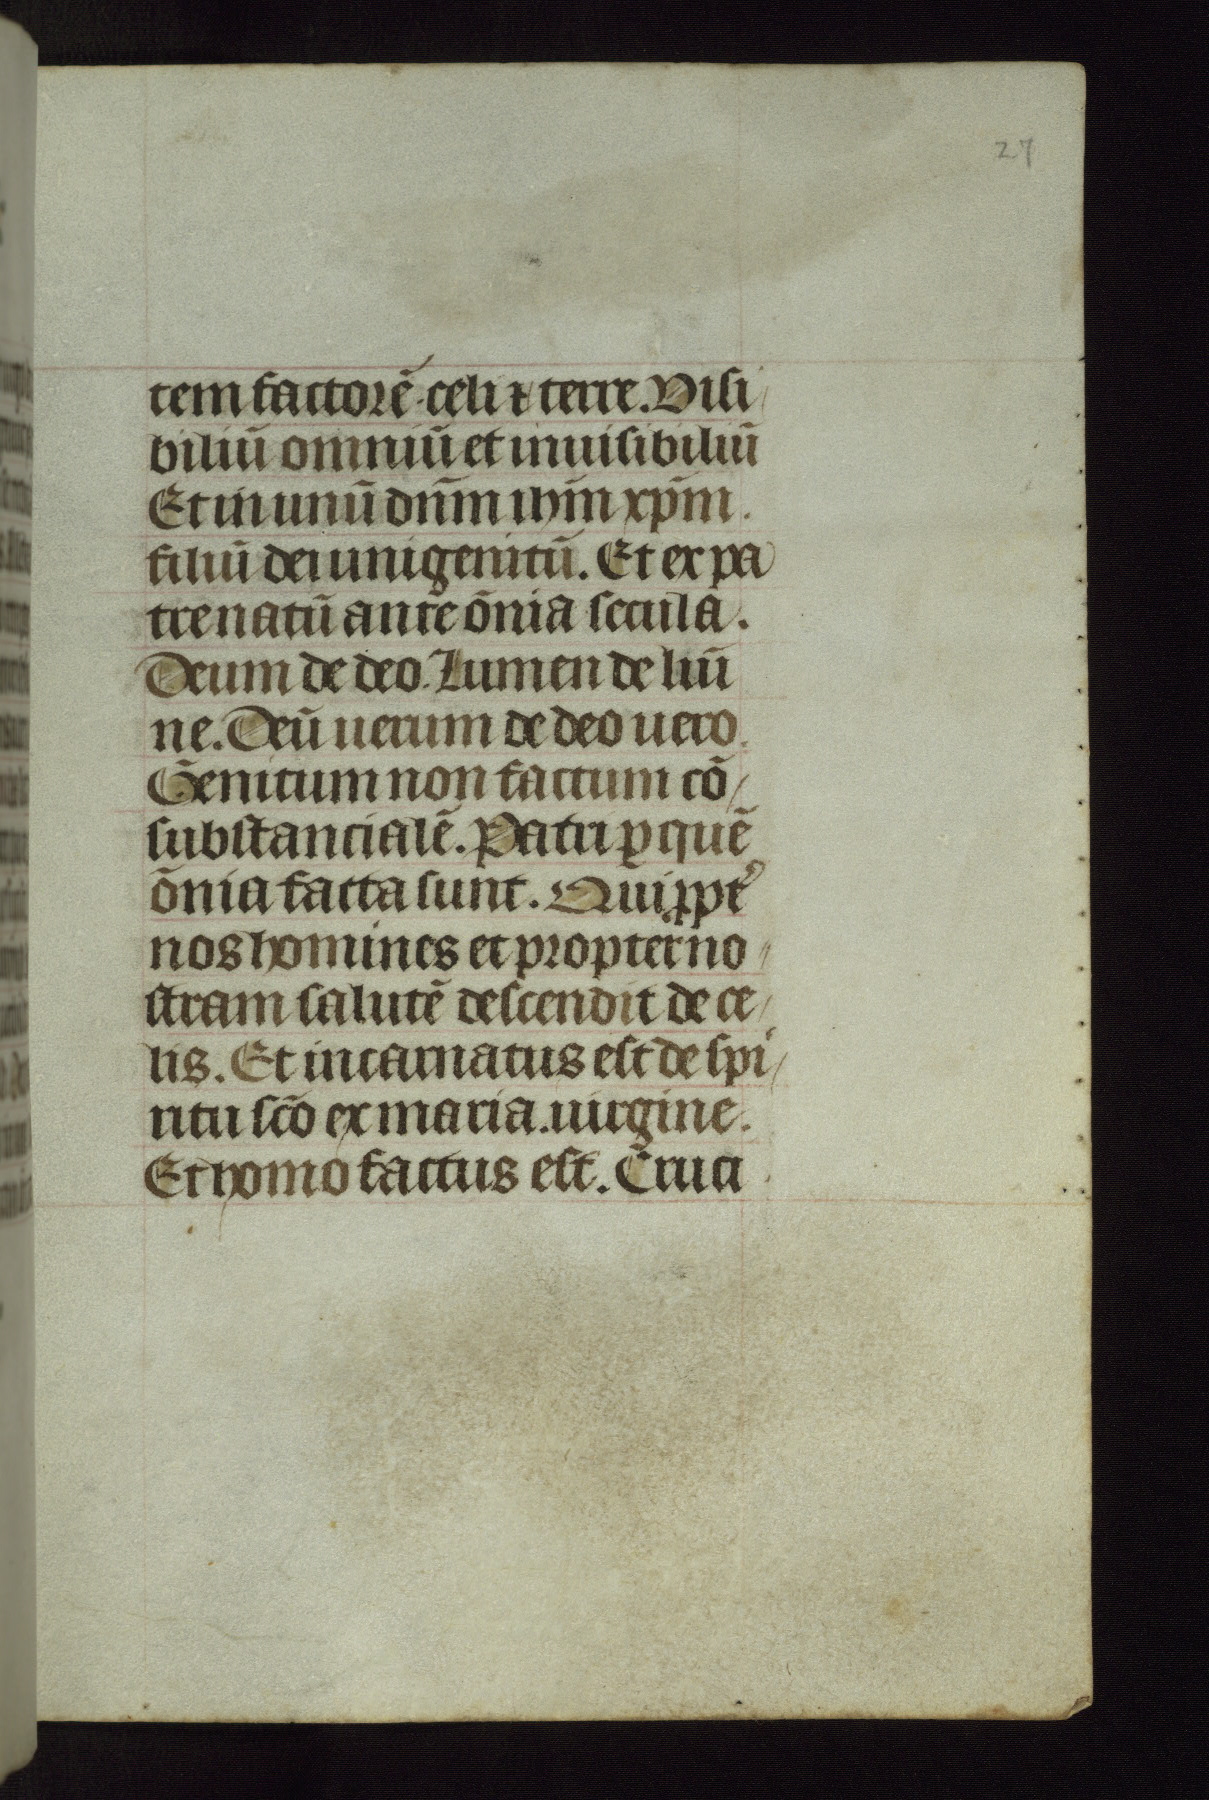 27
tem factorē celi ⁊ terre. Visi
biliū omniū et inuisibiliū
Et in unū dn̄m ihm̄ xp̄m.
filiū dei unigenitū. Et ex pa
tre natū ante ōnia secula.
Deum de deo. Lumen de lūi
ne. Deū uerum de deo uero.
Genitum non factum cō
substancialē. Patri ꝑ quē
ōnia facta sunt. Qui ꝓpt᷑
nos homines et propter no
stram salutē descendit de ce
lis. Et incarnatus est de spi
ritu scō ex maria. uirgine.
Et homo factus est. Cruci